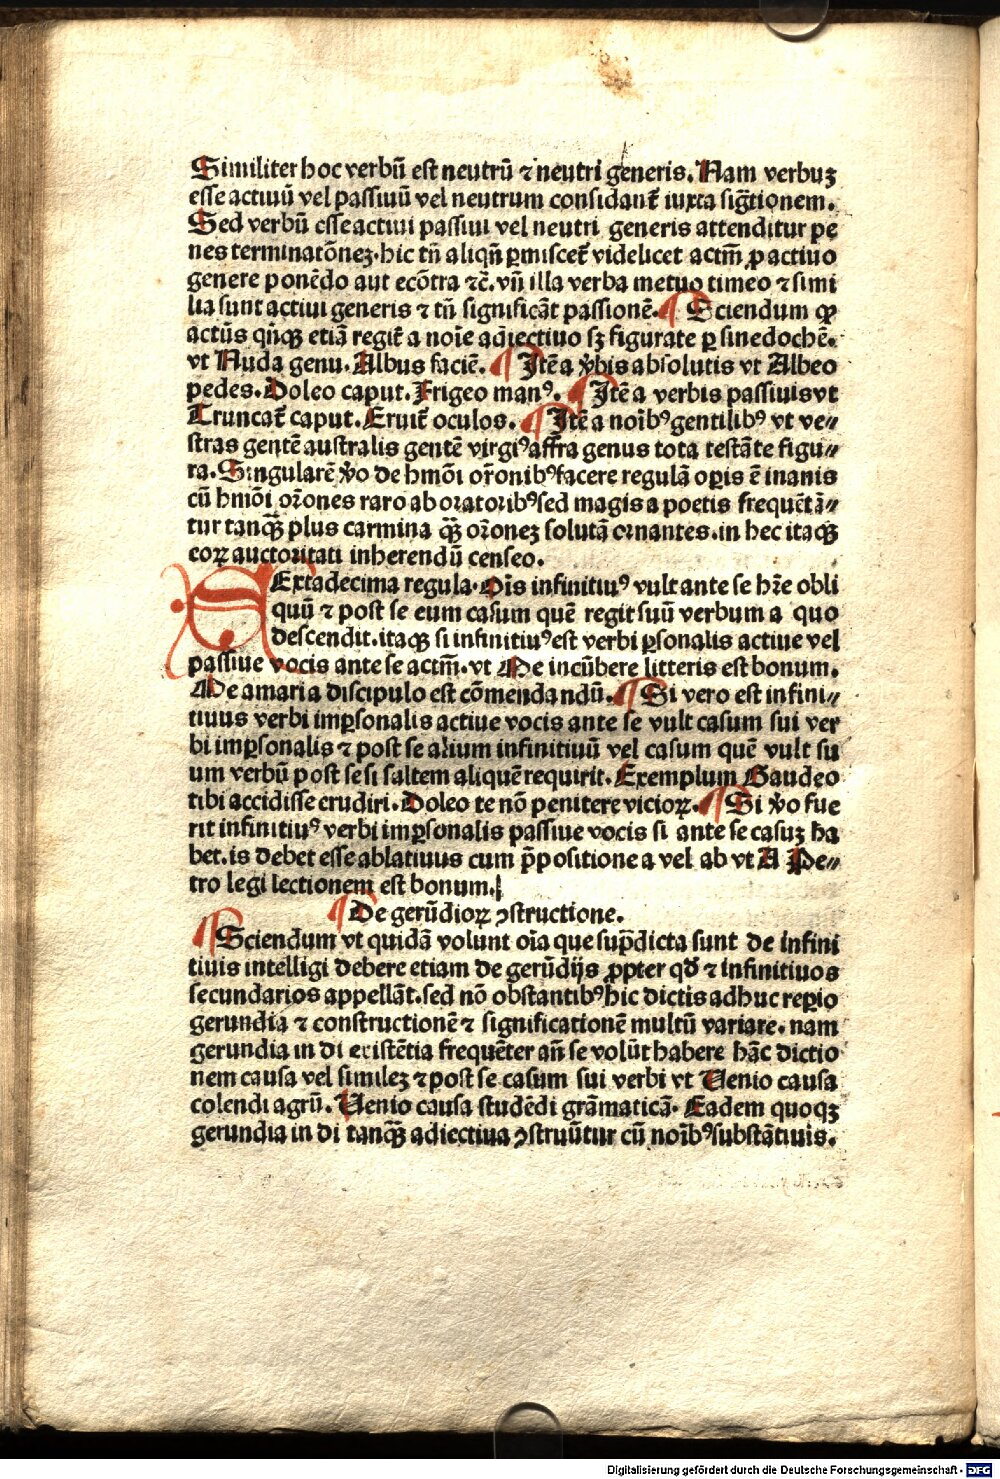 Similiter hoc verbū est neutrū ⁊ neutri generis. Nam verbuꝫ
esse actiuū vel passiuū vel neutrum considant̄ iuxta sig̃tionem.
Sed verbū esse actiui passiui vel neutri generis attenditur pe
nes terminatōnez. hic tñ aliqñ ꝑmiscet̄ videlicet actm̄ ꝓ actiuo
genere ponēdo aut ecōtra ⁊c̄. vñ illa verba metuo timeo ⁊ simi
lia sunt actiui generis ⁊ tñ significāt passionē. ¶ Sciendum ꝙ
actūs qñqꝫ etiā regit̄ a noīe adiectiuo sꝫ figurate ꝑ sinedochē.
vt Nuda genu. Albus faciē. ¶ Jtē a v̄bis absolutis vt Albeo
pedes. Doleo caput. Frigeo manꝰ. ¶ Jtē a verbis passiuis vt
Truncat̄ caput. Eruit̄ oculos. ¶ Jtē a noībꝰ gentilibꝰ vt ve⸗
stras gentē australis gentē virgiꝰ affra genus tota testāte figu⸗
ra. Singularē v̄o de hmōi or̄onibꝰ facere regulā oꝑis ē inanis
cū hmōi or̄ones raro ab oratoribꝰ sed magis a poetis frequētā⸗
tur tanqꝫ̄ plus carmina qꝫ̄ or̄onez solutā ornantes. in hec itaqꝫ
eoꝝ auctoritati inherendū censeo.
SExtadecima regula. Oīs infinitiuꝰ vult ante se hr̄e obli
quū ⁊ post se eum casum quē regit suū verbum a quo
descendit. itaqꝫ si infinitiuꝰ est verbi ꝑsonalis actiue vel
passiue vocis ante se actm̄. vt Me incūbere litteris est bonum.
Me amari a discipulo est cōmendandū. ¶ Si vero est infini⸗
tiuus verbi imꝑsonalis actiue vocis ante se vult casum sui ver
bi imꝑsonalis ⁊ post se alium infinitiuū vel casum quē vult su
um verbū post se si saltem aliquē requirit. Exemplum Gaudeo
tibi accidisse erudiri. Doleo te nō penitere vicioꝝ. ¶ Si v̄o fue
rit infinitiuꝰ verbi imꝑsonalis passiue vocis si ante se casuꝫ ha
bet. is debet esse ablatiuus cum p̄positione a vel ab vt A Pe⸗
tro legi lectionem est bonum.
¶ De gerūdioꝝ ꝯstructione.
¶ Sciendum vt quidā volunt oīa que sup̄dicta sunt de infini
tiuis intelligi debere etiam de gerūdijs ꝓpter qd̄ ⁊ infinitiuos
secundarios appellāt. sed nō obstantibꝰ hic dictis adhuc reꝑio
gerundia ⁊ constructionē ⁊ significationē multū variare. nam
gerundia in di existētia frequēter añ se volūt habere hāc dictio
nem causa vel similez ⁊ post se casum sui verbi vt Uenio causa
colendi agrū. Uenio causa studēdi grāmaticā. Eadem quoqꝫ
gerundia in di tanqꝫ̄ adiectiua ꝯstruūtur cū noībꝰ substātiuis.
Digitalisierung gefördert durch die Deutsche Forschungsgemeinschaft - DFG